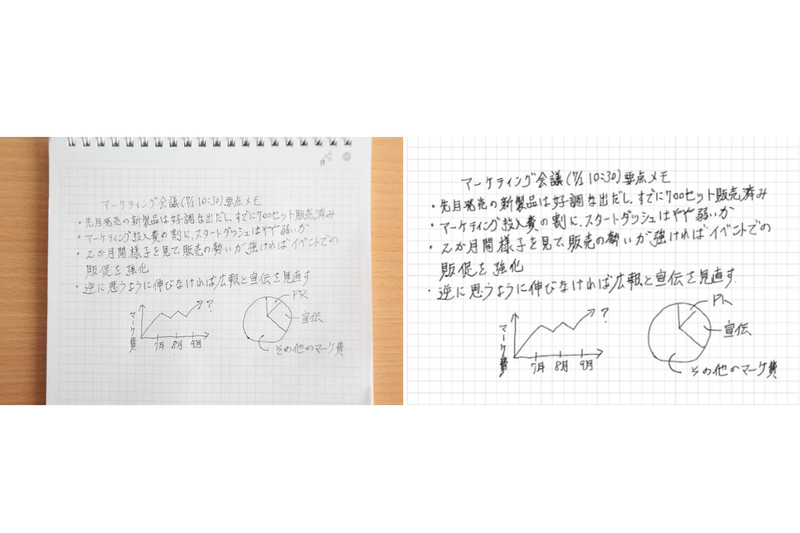 マーケティング会議(7/2 10:30)要点メモ
・先月発売の新製品は好調な出だし、すでに700セット販売済み
・マーケティング投入費の割に、スタートダッシュはやや弱いか
・2か月間様子を見て、販売の勢いが強ければイベントでの
販促を強化
・逆に思うように伸びなければ広報と宣伝を見直す
マーケ費
?
7月 8月 9月
PR
宣伝
その他のマーケ費
マーケティング会議(7/2 10:30)要点メモ
・先月発売の新製品は好調な出だし、すでに700セット販売済み
・マーケティング投入費の割に、スタートダッシュはやや弱いか
・2か月間様子を見て、販売の勢いが強ければイベントでの
販促を強化
・逆に思うように伸びなければ広報と宣伝を見直す
マーケ費
?
7月 8月 9月
PR
宣伝
その他のマーケ費